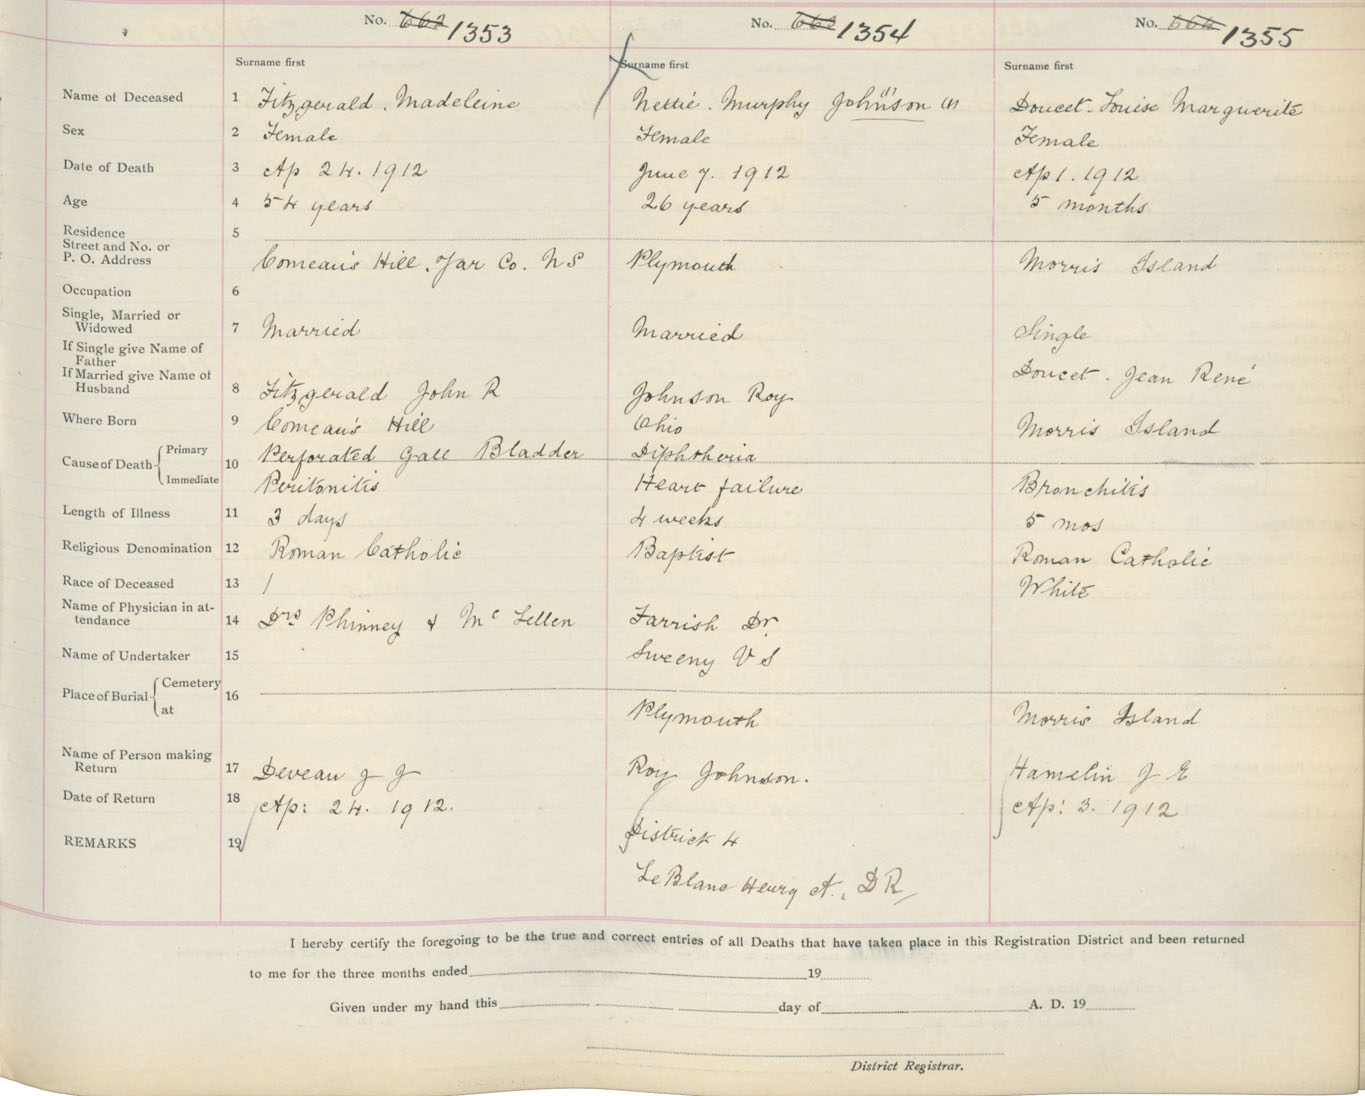 No. 662 1353 No. 663 1354 No. 664 1355
Surname first Surname first Surname first
Name of Deceased 1 Fitzgerald. Madeleine Nettie. Murphy Johnson (1) Doucet. Louise Marguerite
Sex 2 Female Female Female
Date of Death 3 Ap 24. 1912 June 7. 1912 Ap 1. 1912
Age 4 54 years 26 years 5 months
Residence 5
Street and No. or
P. O. Address Comeau's Hill. Yar Co. N S Plymouth Morris Island
Occupation 6
Single, Married or
Widowed 7 Married Married Single
If Single give Name of
Father
If Married give Name of Doucet. Jean René
Husband 8 Fitzgerald John R Johnson Roy
Where Born 9 Comeau's Hill Ohio Morris Island
Cause of Death 10 Primary Perforated Gall Bladder Diphtheria
Immediate Peritonitis Heart failure Bronchitis
Length of Illness 11 3 days 4 weeks 5 mos
Religious Denomination 12 Roman Catholic Baptist Roman Catholic
Race of Deceased 13 / White
Name of Physician in at-
tendance 14 Drs Phinney & Mc Lellen Farrish Dr.
Name of Undertaker 15 Sweeny V S
Place of Burial 16 Cemetery
at Plymouth Morris Island
Name of Person making
Return 17 Deveau J J Roy Johnson. Hamelin J E
Date of Return 18 Ap: 24. 1912. Ap: 3. 1912
REMARKS 19 District 4
LeBlanc Henry A., D R
I hereby certify the foregoing to be the true and correct entries of all Deaths that have taken place in this Registration District and been returned
to me for the three months ended 19
Given under my hand this day of A. D. 19
District Registrar.